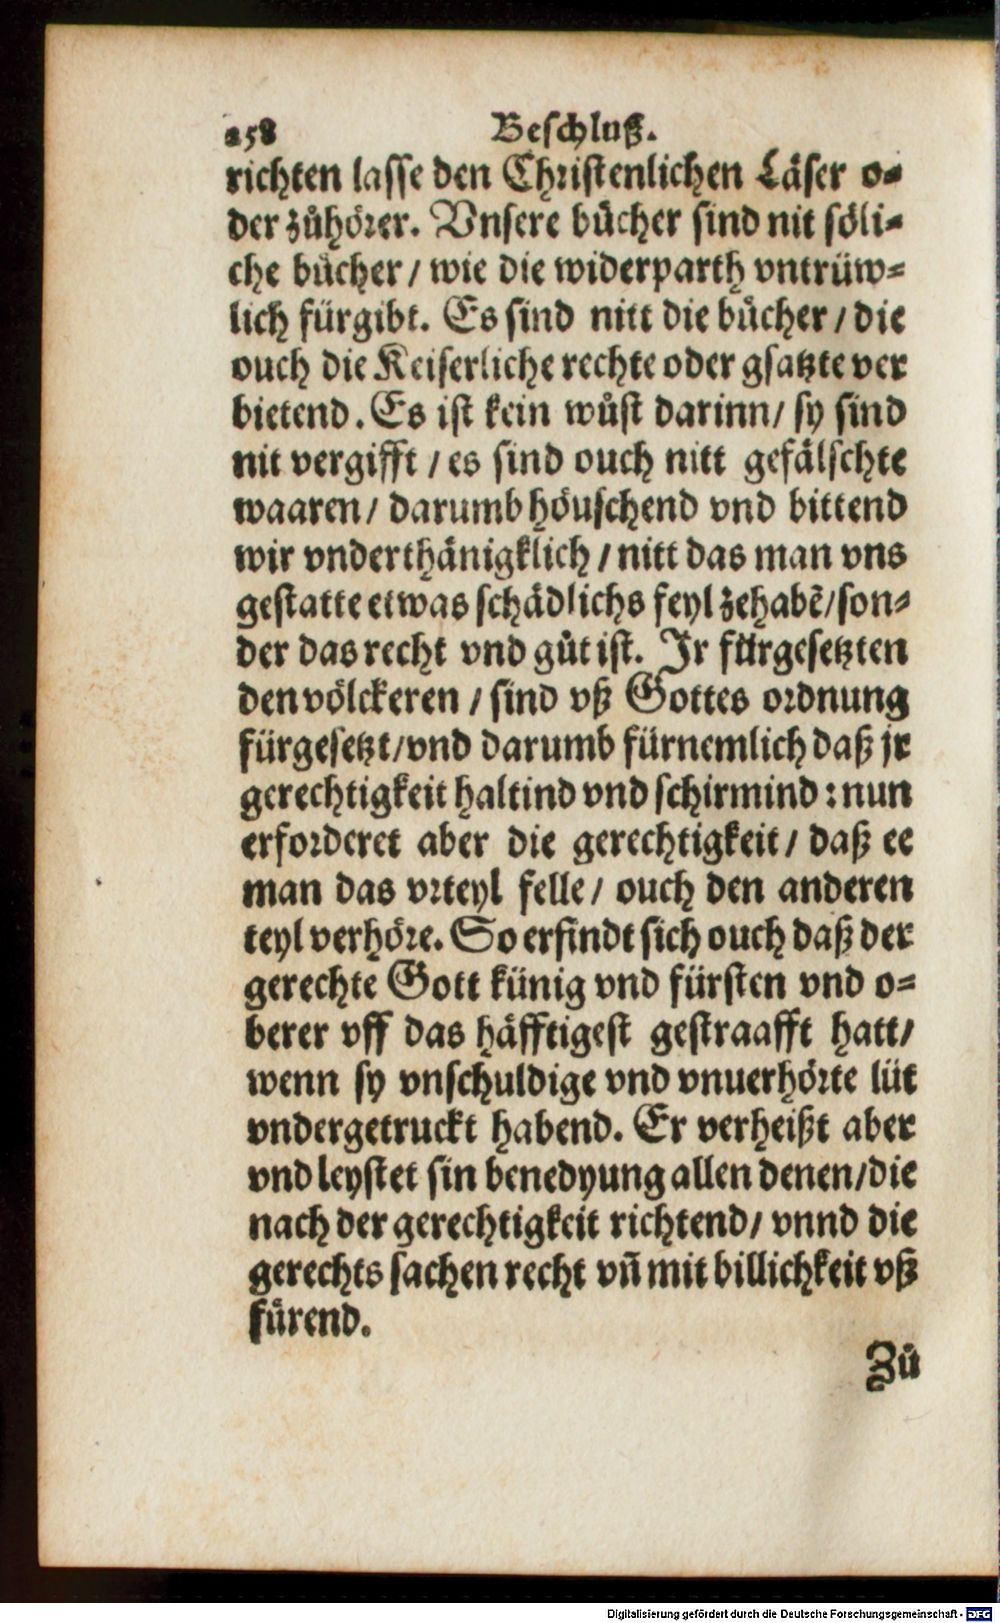 258 Beschluß.
richten lasse den Christenlichen Läser o-
der zůhörer. Vnsere bücher sind nit söli-
che bücher / wie die widerparth vntrüw-
lich fürgibt. Es sind nitt die bücher / die
ouch die Keiserliche rechte oder gsatzte ver
bietend. Es ist kein wůst darinn / sy sind
nit vergifft / es sind ouch nitt gefälschte
waaren / darumb höuschend vnd bittend
wir vnderthänigklich / nitt das man vns
gestatte etwas schädlichs feyl zehabẽ / son-
der das recht vnd gůt ist. Ir fürgesetzten
den völckeren / sind vß Gottes ordnung
fürgesetzt / vnd darumb fürnemlich daß jr
gerechtigkeit haltind vnd schirmind : nun
erforderet aber die gerechtigkeit / daß ee
man das vrteyl felle / ouch den anderen
teyl verhöre. So erfindt sich ouch daß der
gerechte Gott künig vnd fürsten vnd o-
berer vff das häfftigest gestraafft hatt /
wenn sy vnschuldige vnd vnuerhörte lüt
vndergetruckt habend. Er verheißt aber
vnd leystet sin benedyung allen denen / die
nach der gerechtigkeit richtend / vnnd die
gerechts sachen recht vñ mit billichkeit vß
fürend.
Zů
Digitalisierung gefördert durch die Deutsche Forschungsgemeinschaft - DFG